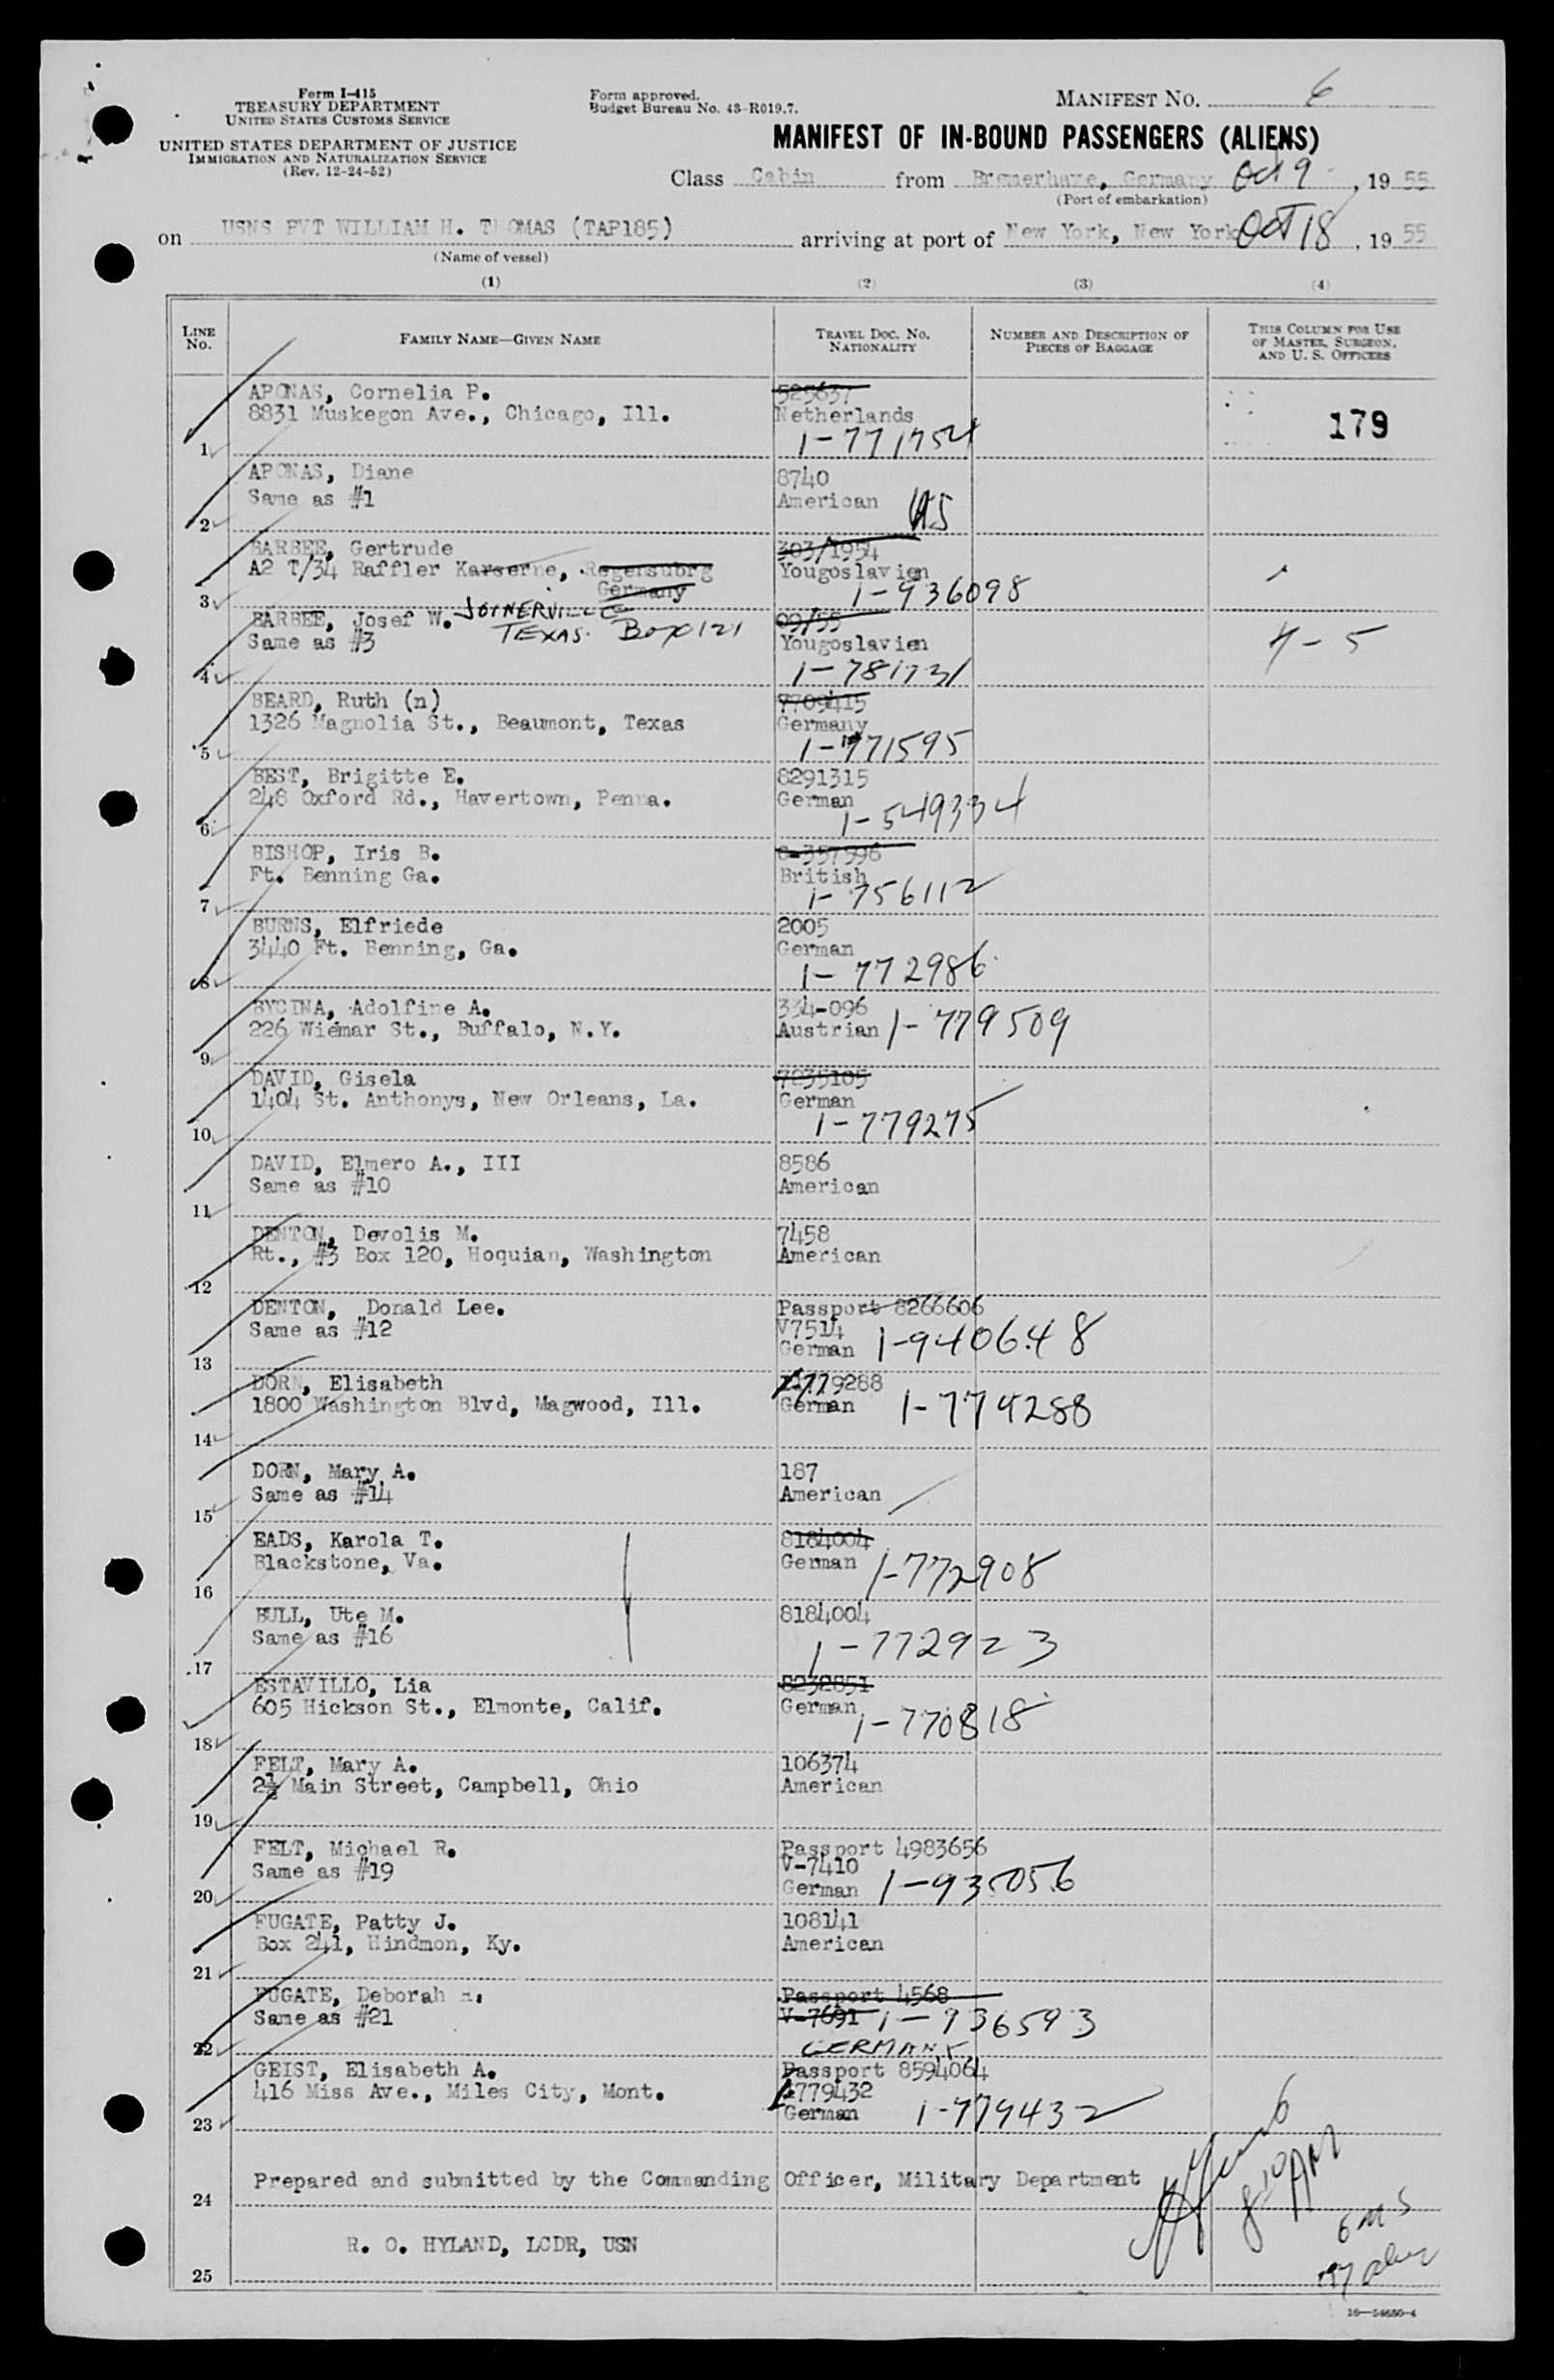 Form I-415
TREASURY DEPARTMENT
UNITED STATES CUSTOMS SERVICE
UNITED STATES DEPARTMENT OF JUSTICE
IMMIGRATION AND NATURALIZATION SERVICE
(Rev. 12-24-52)
Form approved.
Budget Bureau No. 43-R019.7.
MANIFEST NO. 6
MANIFEST OF IN-BOUND PASSENGERS (ALIENS)
Class Cabin from Bremerhave, Germany Oct 9, 1955
(Port of embarkation)
on USNS PVT WILLIAM H. THOMAS (TAP185) arriving at port of New York, New York Oct 18, 1955
(Name of vessel)
(1) (2) (3) (4)
LINE No.
FAMILY NAME—GIVEN NAME
TRAVEL DOC. NO. NATIONALITY
NUMBER AND DESCRIPTION OF PIECES OF BAGGAGE
THIS COLUMN FOR USE OF MASTER, SURGEON, AND U. S. OFFICERS
APONAS, Cornelia P. 525637
8831 Muskegon Ave., Chicago, Ill. Netherlands 179
1 1-771754
APONAS, Diane 8740
Same as #1 American US
2
BARBEE, Gertrude 303/1954
A2 T/34 Raffler Karserne, Regensubrg Yougoslavien
Germany 1-936098
3
BARBEE, Josef W. JOINERVILLE 09/55
Same as #3 TEXAS. Box 121 Yougoslavien 4-5
4 1-781731
BEARD, Ruth (n) 7709415
1326 Magnolia St., Beaumont, Texas Germany
5 1-771595
BEST, Brigitte E. 8291315
248 Oxford Rd., Havertown, Penna. German
6 1-549334
BISHOP, Iris B. C-357596
Ft. Benning Ga. British
7 1-756112
BURNS, Elfriede 2005
3440 Ft. Benning, Ga. German
8 1-772986
BYCINA, Adolfine A. 334-096
226 Wiemar St., Buffalo, N.Y. Austrian 1-779509
9
DAVID, Gisela 7235105
1404 St. Anthonys, New Orleans, La. German
10 1-779275
DAVID, Elmero A., III 8586
Same as #10 American
11
DENTON, Devolis M. 7458
Rt., #3 Box 120, Hoquian, Washington American
12
DENTON, Donald Lee. Passport 8266606
Same as #12 V7514
13 German 1-940648
DORN, Elisabeth 779288
1800 Washington Blvd, Magwood, Ill. German 1-779288
14
DORN, Mary A. 187
Same as #14 American
15
EADS, Karola T. 8184004
Blackstone, Va. German 1-772908
16
BULL, Ute M. 8184004
Same as #16 1-772923
17
ESTAVILLO, Lia 8232851
605 Hickson St., Elmonte, Calif. German
18 1-770818
FELT, Mary A. 106374
2½ Main Street, Campbell, Ohio American
19
FELT, Michael R. Passport 4983656
Same as #19 V-7410
20 German 1-935056
FUGATE, Patty J. 108141
Box 241, Hindmon, Ky. American
21
FUGATE, Deborah Passport 4568
Same as #21 V-7691 1-936593
22 GERMANY
GEIST, Elisabeth A. Passport 8594064
416 Miss Ave., Miles City, Mont. 779432
23 German 1-779432
Prepared and submitted by the Commanding Officer, Military Department
24
R. O. HYLAND, LCDR, USN
25
8:10 AM
16—54680-4